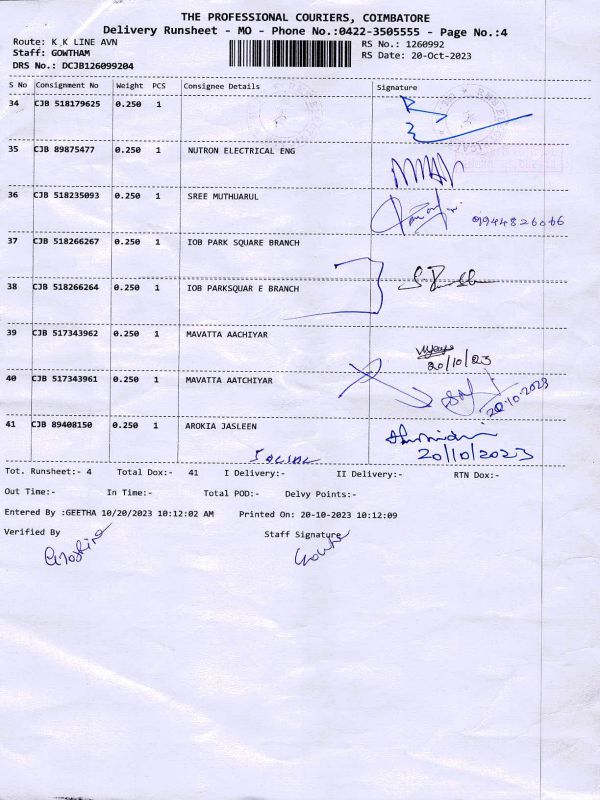 THE PROFESSIONAL COURIERS, COIMBATORE
Delivery Runsheet - MO - Phone No.:0422-3505555 - Page No.:4
Route: K K LINE AVN
RS No.: 1260992
Staff: GOWTHAM
RS Date: 20-Oct-2023
DRS No.: DCJB126099204
S No Consignment No Weight PCS Consignee Details Signature
34 CJB 518179625 0.250 1
35 CJB 89875477 0.250 1 NUTRON ELECTRICAL ENG
36 CJB 518235093 0.250 1 SREE MUTHUARUL 9944826066
37 CJB 518266267 0.250 1 IOB PARK SQUARE BRANCH
38 CJB 518266264 0.250 1 IOB PARKSQUAR E BRANCH
39 CJB 517343962 0.250 1 MAVATTA AACHIYAR
20/10/23
40 CJB 517343961 0.250 1 MAVATTA AATCHIYAR
20.10.2023
41 CJB 89408150 0.250 1 AROKIA JASLEEN
20/10/2023
Tot. Runsheet:- 4 Total Dox:- 41 I Delivery:- II Delivery:- RTN Dox:-
Out Time:- In Time:- Total POD:- Delvy Points:-
Entered By :GEETHA 10/20/2023 10:12:02 AM Printed On: 20-10-2023 10:12:09
Verified By Staff Signature